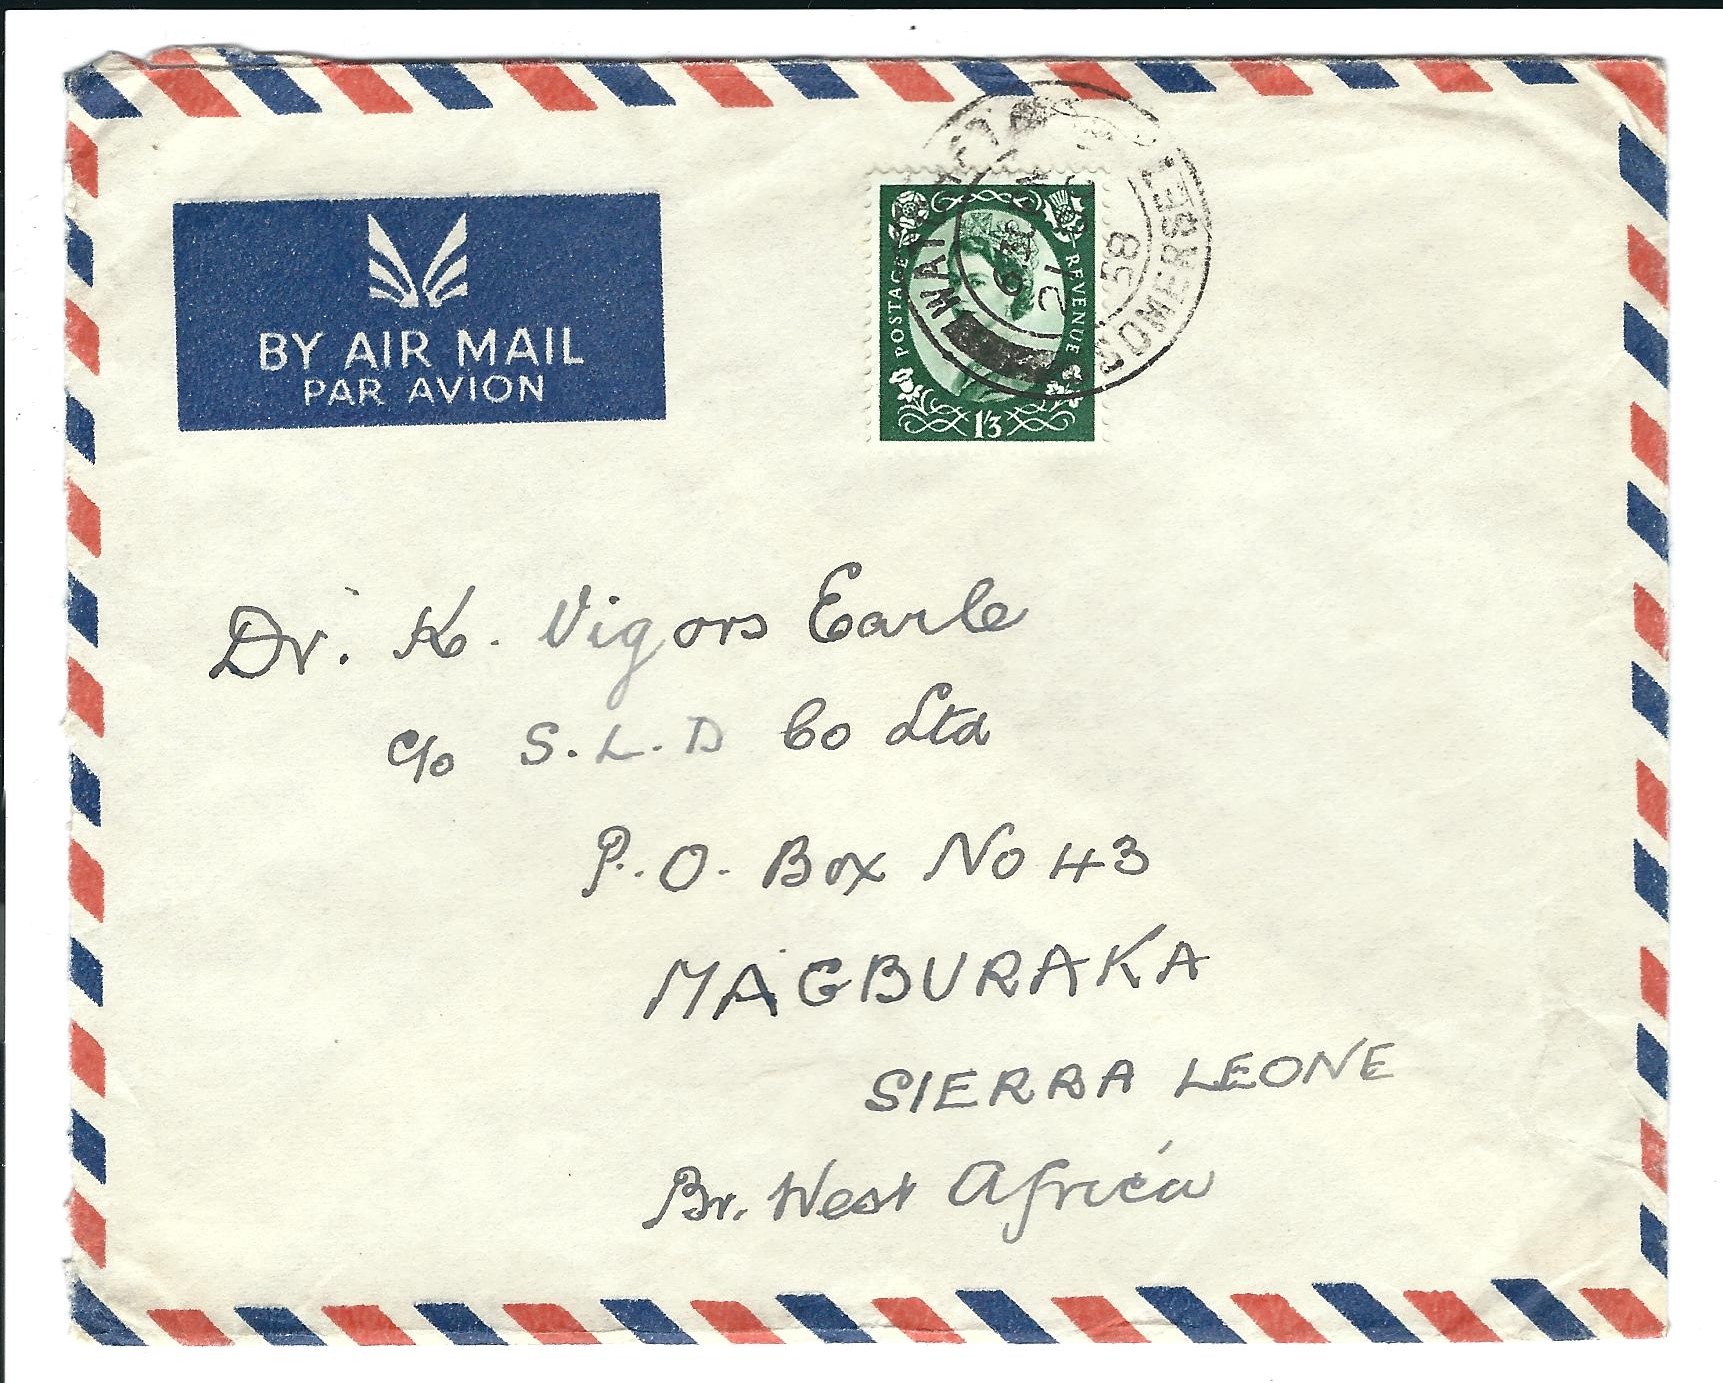 BY AIR MAIL
PAR AVION
POSTAGE
REVENUE
1/3
WATCHET
58
SOMERSET
Dr. K. Vigors Earle
c/o S.L.D Co Ltd
P.O. Box No 43
MAGBURAKA
SIERRA LEONE
Br. West Africa